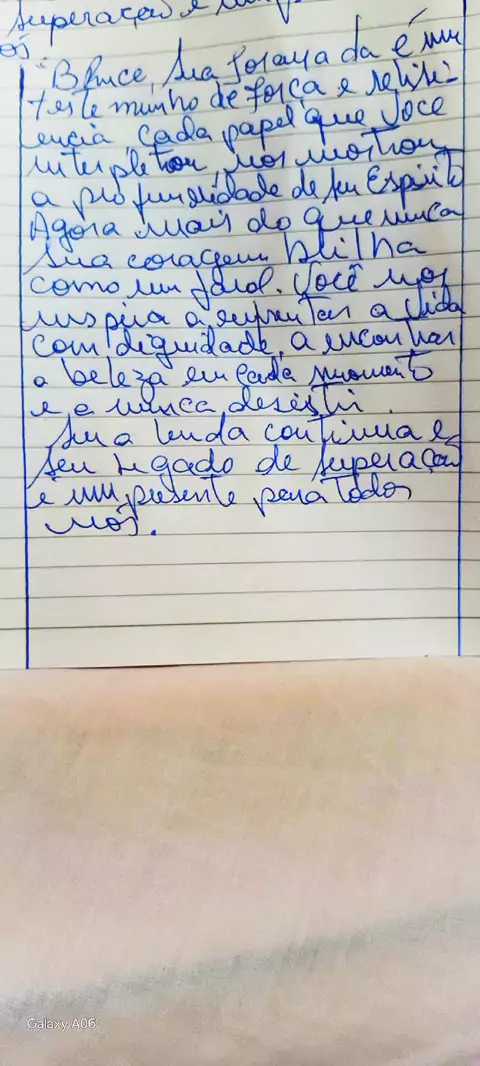 superação e um
os
"Bruce, sua jornada é um
testemunho de força e resili-
encia, cada papel que você
interpretou, nos mostrou
a profundidade de seu Espírito
Agora mais do que nunca
sua coragem brilha
como um farol. Você nos
inspira a enfrentar a vida
com dignidade, a encontrar
a beleza em cada momento
e a nunca desistir.
Sua lenda continua e
seu legado de superação
é um presente para todos
nós.
Galaxy A06